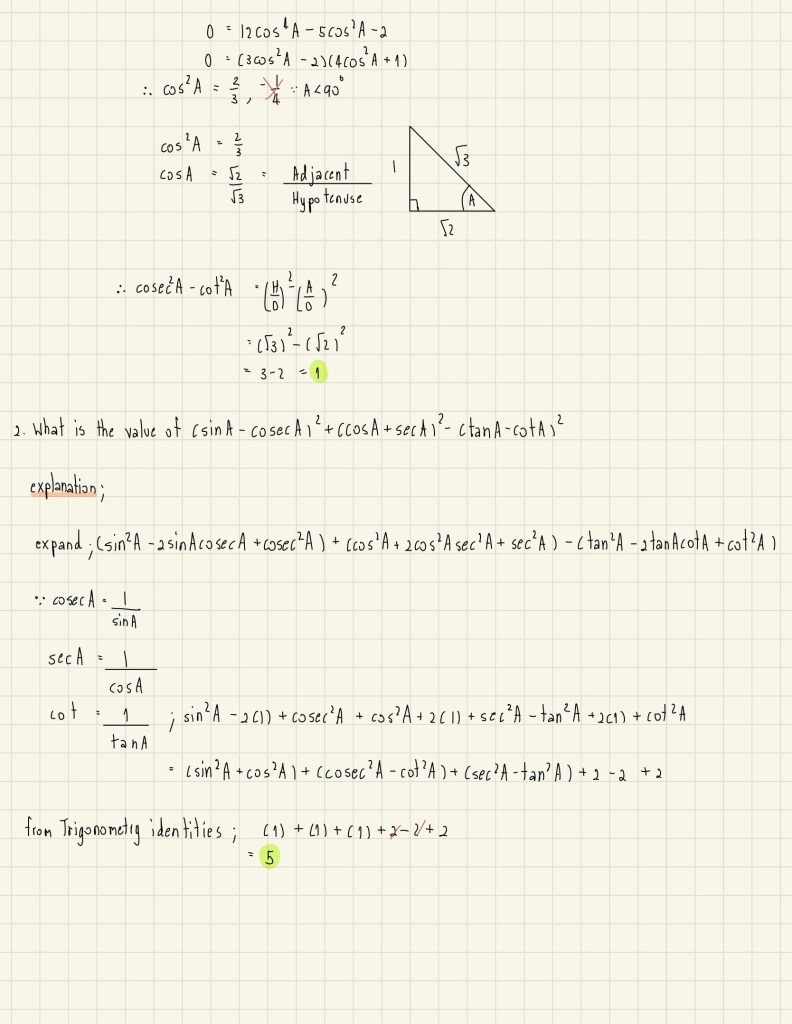 0 = 12cos⁴A - 5cos²A - 2
0 = (3cos²A - 2)(4cos²A + 1)
∴ cos²A = 2/3 , -1/4 ∵ A < 90°
cos²A = 2/3
cosA = √2/√3 = Adjacent/Hypotenuse
1 √3 A √2
∴ cosec²A - cot²A = (H/O)² - (A/O)²
= (√3)² - (√2)²
= 3 - 2 = 1
2. What is the value of (sinA - cosecA)² + (cosA + secA)² - (tanA - cotA)²
explanation;
expand ; (sin²A - 2sinAcosecA + cosec²A) + (cos²A + 2cos²Asec²A + sec²A) - (tan²A - 2tanAcotA + cot²A)
∵ cosecA = 1/sinA
secA = 1/cosA
cot = 1/tanA ; sin²A - 2(1) + cosec²A + cos²A + 2(1) + sec²A - tan²A + 2(1) + cot²A
= (sin²A + cos²A) + (cosec²A - cot²A) + (sec²A - tan²A) + 2 - 2 + 2
from Trigonometry identities ; (1) + (1) + (1) + 2 - 2 + 2
= 5